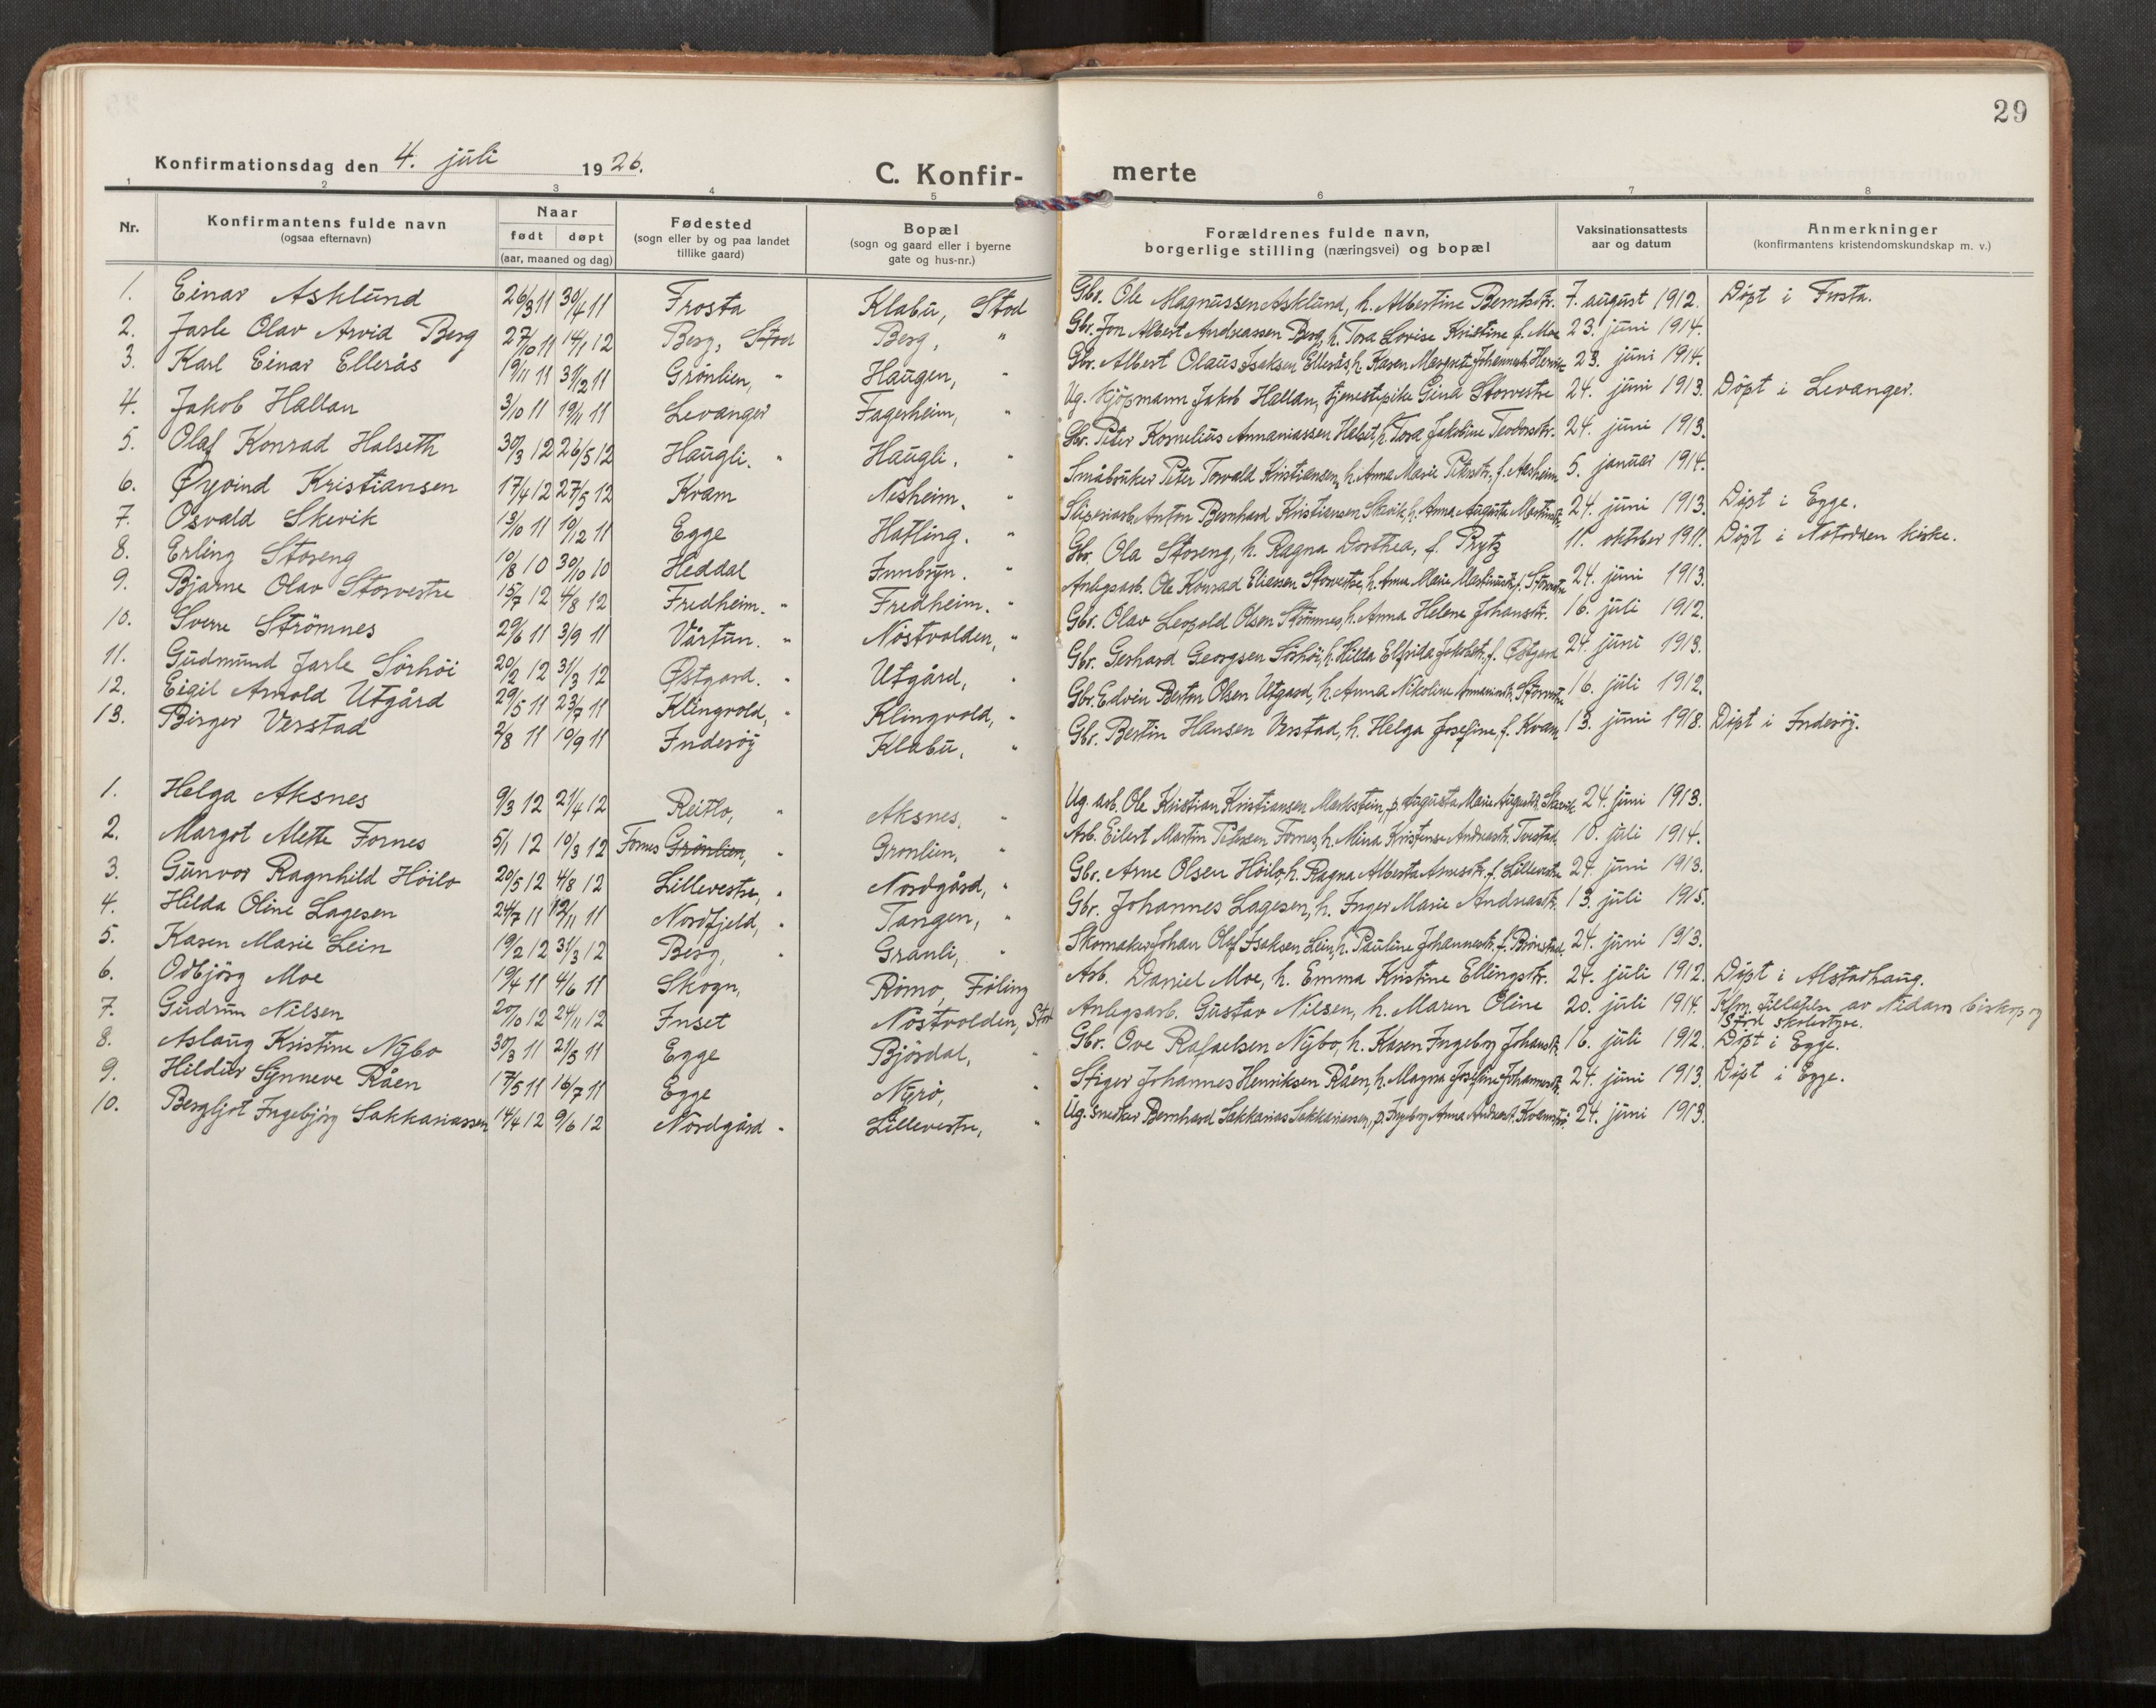 29
Konfirmationsdag den 4. juli 1926.
C. Konfir- merte
1 2 3 4 5 6 7 8
Nr.
Konfirmantens fulde navn
(ogsaa efternavn)
Naar
født døpt
(aar, maaned og dag)
Fødested
(sogn eller by og paa landet
tillike gaard)
Bopæl
(sogn og gaard eller i byerne
gate og hus-nr.)
Forældrenes fulde navn,
borgerlige stilling (næringsvei) og bopæl
Vaksinationsattests
aar og datum
Anmerkninger
(konfirmantens kristendomskundskap m. v.)
1. Einar Asklund 26/3 11 30/4 11 Frosta Klabu, Stod Gbr. Ole Magnussen Asklund, h. Albertine Berntsdtr. 7. august 1912. Döpt i Frosta.
2. Jarle Olav Arvid Berg 27/10 11 14/1 12 Berg, Stod Berg, " Gbr. Jon Albert Andreassen Berg, h. Tora Lovise Kristine f. Moe 23. juni 1914.
3. Karl Einar Ellerås 19/11 11 31/12 11 Grönlien, " Haugen, " Gbr. Albert Olaus Isaksen Ellerås, h. Karen Margrete Johannesd. 23. juni 1914.
4. Jakob Hallan 3/10 11 19/11 11 Levanger Fagerheim, " Ug. Kjöpmann Jakob Hallan, tjenestepike Gina Storvestre 24. juni 1913. Döpt i Levanger.
5. Olaf Konrad Halseth 30/3 12 26/5 12 Haugli. " Haugli. " Gbr. Peter Kornelius Annaniassen Halset, h. Tora Jakobine Teodorsdtr. 24. juni 1913.
6. Øyvind Kristiansen 17/4 12 27/5 12 Kvam Nesheim. " Småbruker Peter Torvald Kristiansen, h. Anna Marie Petersdtr. f. Aasheim 5. januar 1914.
7. Osvald Skevik 13/10 11 10/12 11 Egge Hatling. " Sliperiarb. Anton Bernhard Kristiansen Skevik, h. Anna Augusta Martinsdtr. 24. juni 1913. Döpt i Egge.
8. Erling Storeng 10/8 10 30/10 10 Heddal Innbryn. " Gbr. Ola Storeng, h. Ragna Dorthea, f. Prytz 11. oktober 1911. Döpt i Notodden kirke.
9. Bjarne Olav Storvestre 15/7 12 4/8 12 Fredheim. " Fredheim. " Anlegsarb. Ole Konrad Eliassen Storvestre, h. Anna Marie Martinusdtr. f. Storvestre 24. juni 1913.
10. Sverre Strömnes 29/6 11 3/9 11 Vårtun. " Nöstvolden, " Gbr. Olav Leopold Olsen Strömnes, h. Anna Helene Johansdtr. 16. juli 1912.
11. Gudmund Jarle Sörhöi 20/2 12 31/3 12 Østgard. " Utgård, " Gbr. Gerhard Georgsen Sörhöi, h. Hilda Elfrida Jakobdtr. f. Østgard 24. juni 1913.
12. Eigil Arnold Utgård 29/5 11 23/7 11 Klingvold, " Klingvold, " Gbr. Edvin Berton Olsen Utgaard, h. Anna Nikoline Annaniasdtr. Storvestre 16. juli 1912.
13. Birger Verstad 2/8 11 10/9 11 Inderöy Klabu, " Gbr. Bertin Hansen Verstad, h. Helga Josefine, f. Kvam 13. juni 1918. Döpt i Inderöy.
1. Helga Aksnes 9/3 12 21/4 12 Reitlo, " Aksnes, " Ug. arb. Ole Kristian Kristiansen Merkstein, p. Augusta Marie Augustsd. Skevik 24. juni 1913.
2. Margot Alette Fornes 5/1 12 10/3 12 Fornes Grönlien, " Grönlien, " Arb. Eilert Martin Petersen Fornes, h. Mina Kristense Andreasdtr. Tverstad. 10. juli 1914.
3. Gunvor Ragnhild Höilo 20/5 12 4/8 12 Lillevestre, " Nordgård, " Gbr. Arne Olsen Höilo, h. Ragna Alberta Arnesdtr. f. Lillevestre 24. juni 1913.
4. Hilda Oline Lagesen 24/7 11 12/11 11 Nordfjeld, " Tangen, " Gbr. Johannes Lagesen, h. Inger Marie Andreasdtr. 13. juli 1915.
5. Karen Marie Lein 19/2 12 31/3 12 Berg, " Granli, " Skomaker Johan Olaf Isaksen Lein, h. Pauline Johannesdtr. f. Brönstad. 24. juni 1913.
6. Odbjörg Moe 19/4 11 4/6 11 Skogn, Römo, Föling Arb. Daniel Moe, h. Emma Kristine Ellingsdtr. 24. juli 1912. Döpt i Alstadhaug.
7. Gudrun Nilsen 20/10 12 24/11 12 Inset Nöstvolden, Stod Anlegsarb. Gustav Nilsen, h. Maren Oline 20. juli 1914. Kfm. tillatelse av Nidaros biskop og
Stod skolestyre.
8. Aslaug Kristine Nybo 30/3 11 21/5 11 Egge Björdal, " Gbr. Ove Rafaelsen Nybo, h. Karen Ingeborg Johansdtr. 16. juli 1912. Döpt i Egge.
9. Hildur Synneve Råen 17/5 11 16/7 11 Egge Nyrö, " Stiger Johannes Henriksen Råen, h. Magna Josefine Johannesdtr. 24. juni 1913. Döpt i Egge.
10. Bergljot Ingebjörg Sakkariassen 14/4 12 9/6 12 Nordgård " Lillevestre, " Ug. snekker Bernhard Sakkarias Sakkariassen, p. Ingeborg Anna Andreasd. 24. juni 1913.